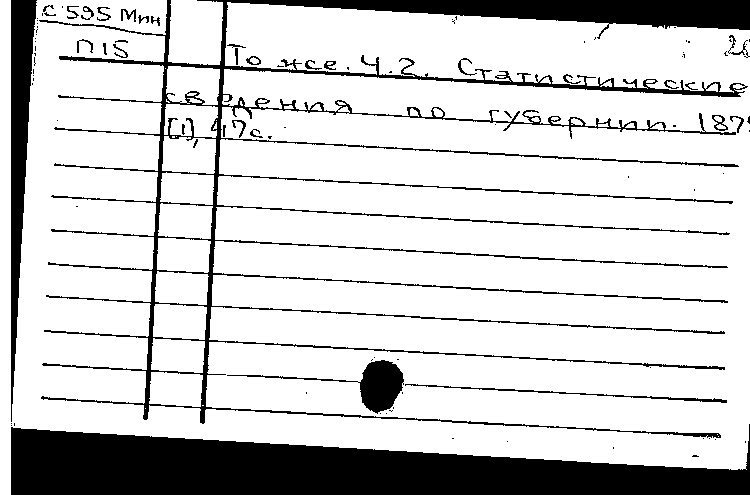 С 595 Мин
П15
То же. Ч.2. Статистические
сведения по губернии.
[1], 47с.